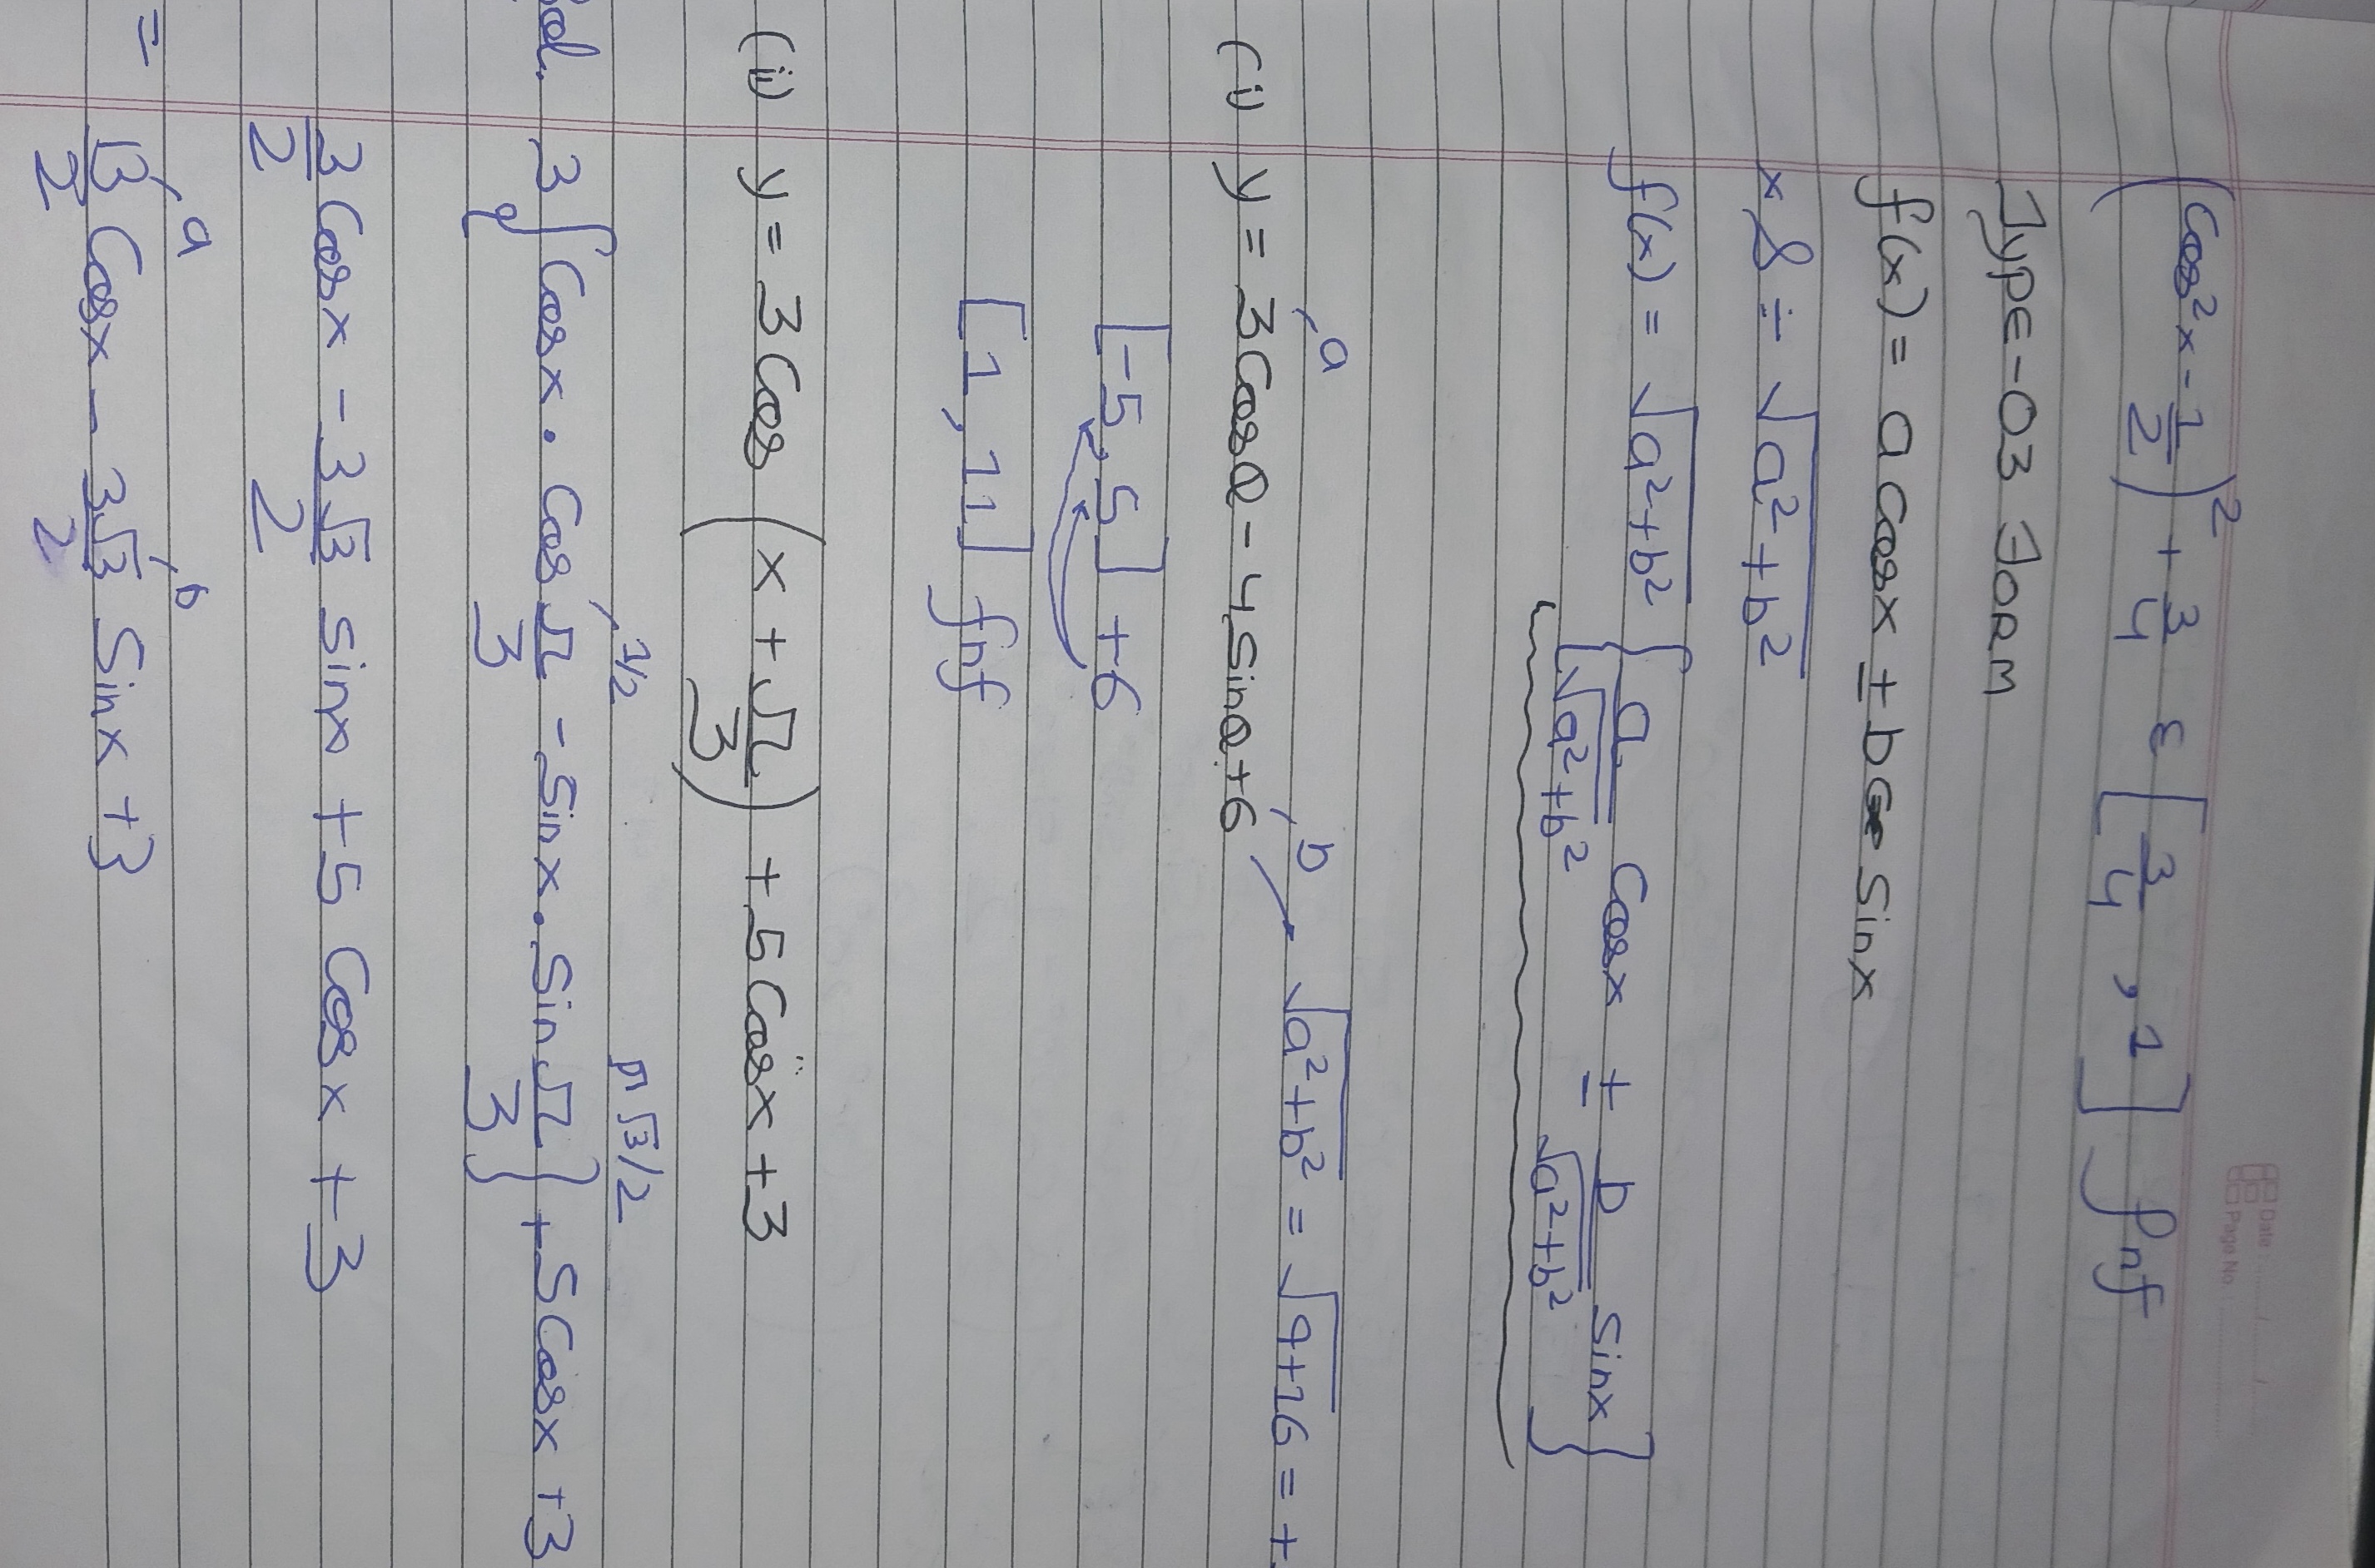 Date : ....../....../......
Page No. : ..................
(Cos²x - 1/2)² + 3/4 ε [3/4 , 1]
Type-03 FORM
f(x) = a Cosx ± b Sinx
x & ÷ √a²+b²
f(x) = √a²+b² { a/√a²+b² Cosx ± b/√a²+b² Sinx }
a b
(i) y = 3Cosθ - 4Sinθ+6 → √a²+b² = √9+16 = +
[-5, 5] +6
[1, 11]
(ii) y = 3Cos (x + π/3) + 5Cosx +3
1/2 √3/2
Sol. 3 { Cosx . Cos π/3 - Sinx . Sin π/3 } +5Cosx +3
3/2 Cosx - 3√3/2 Sinx +5 Cosx +3
a b
= 13/2 Cosx - 3√3/2 Sinx +3